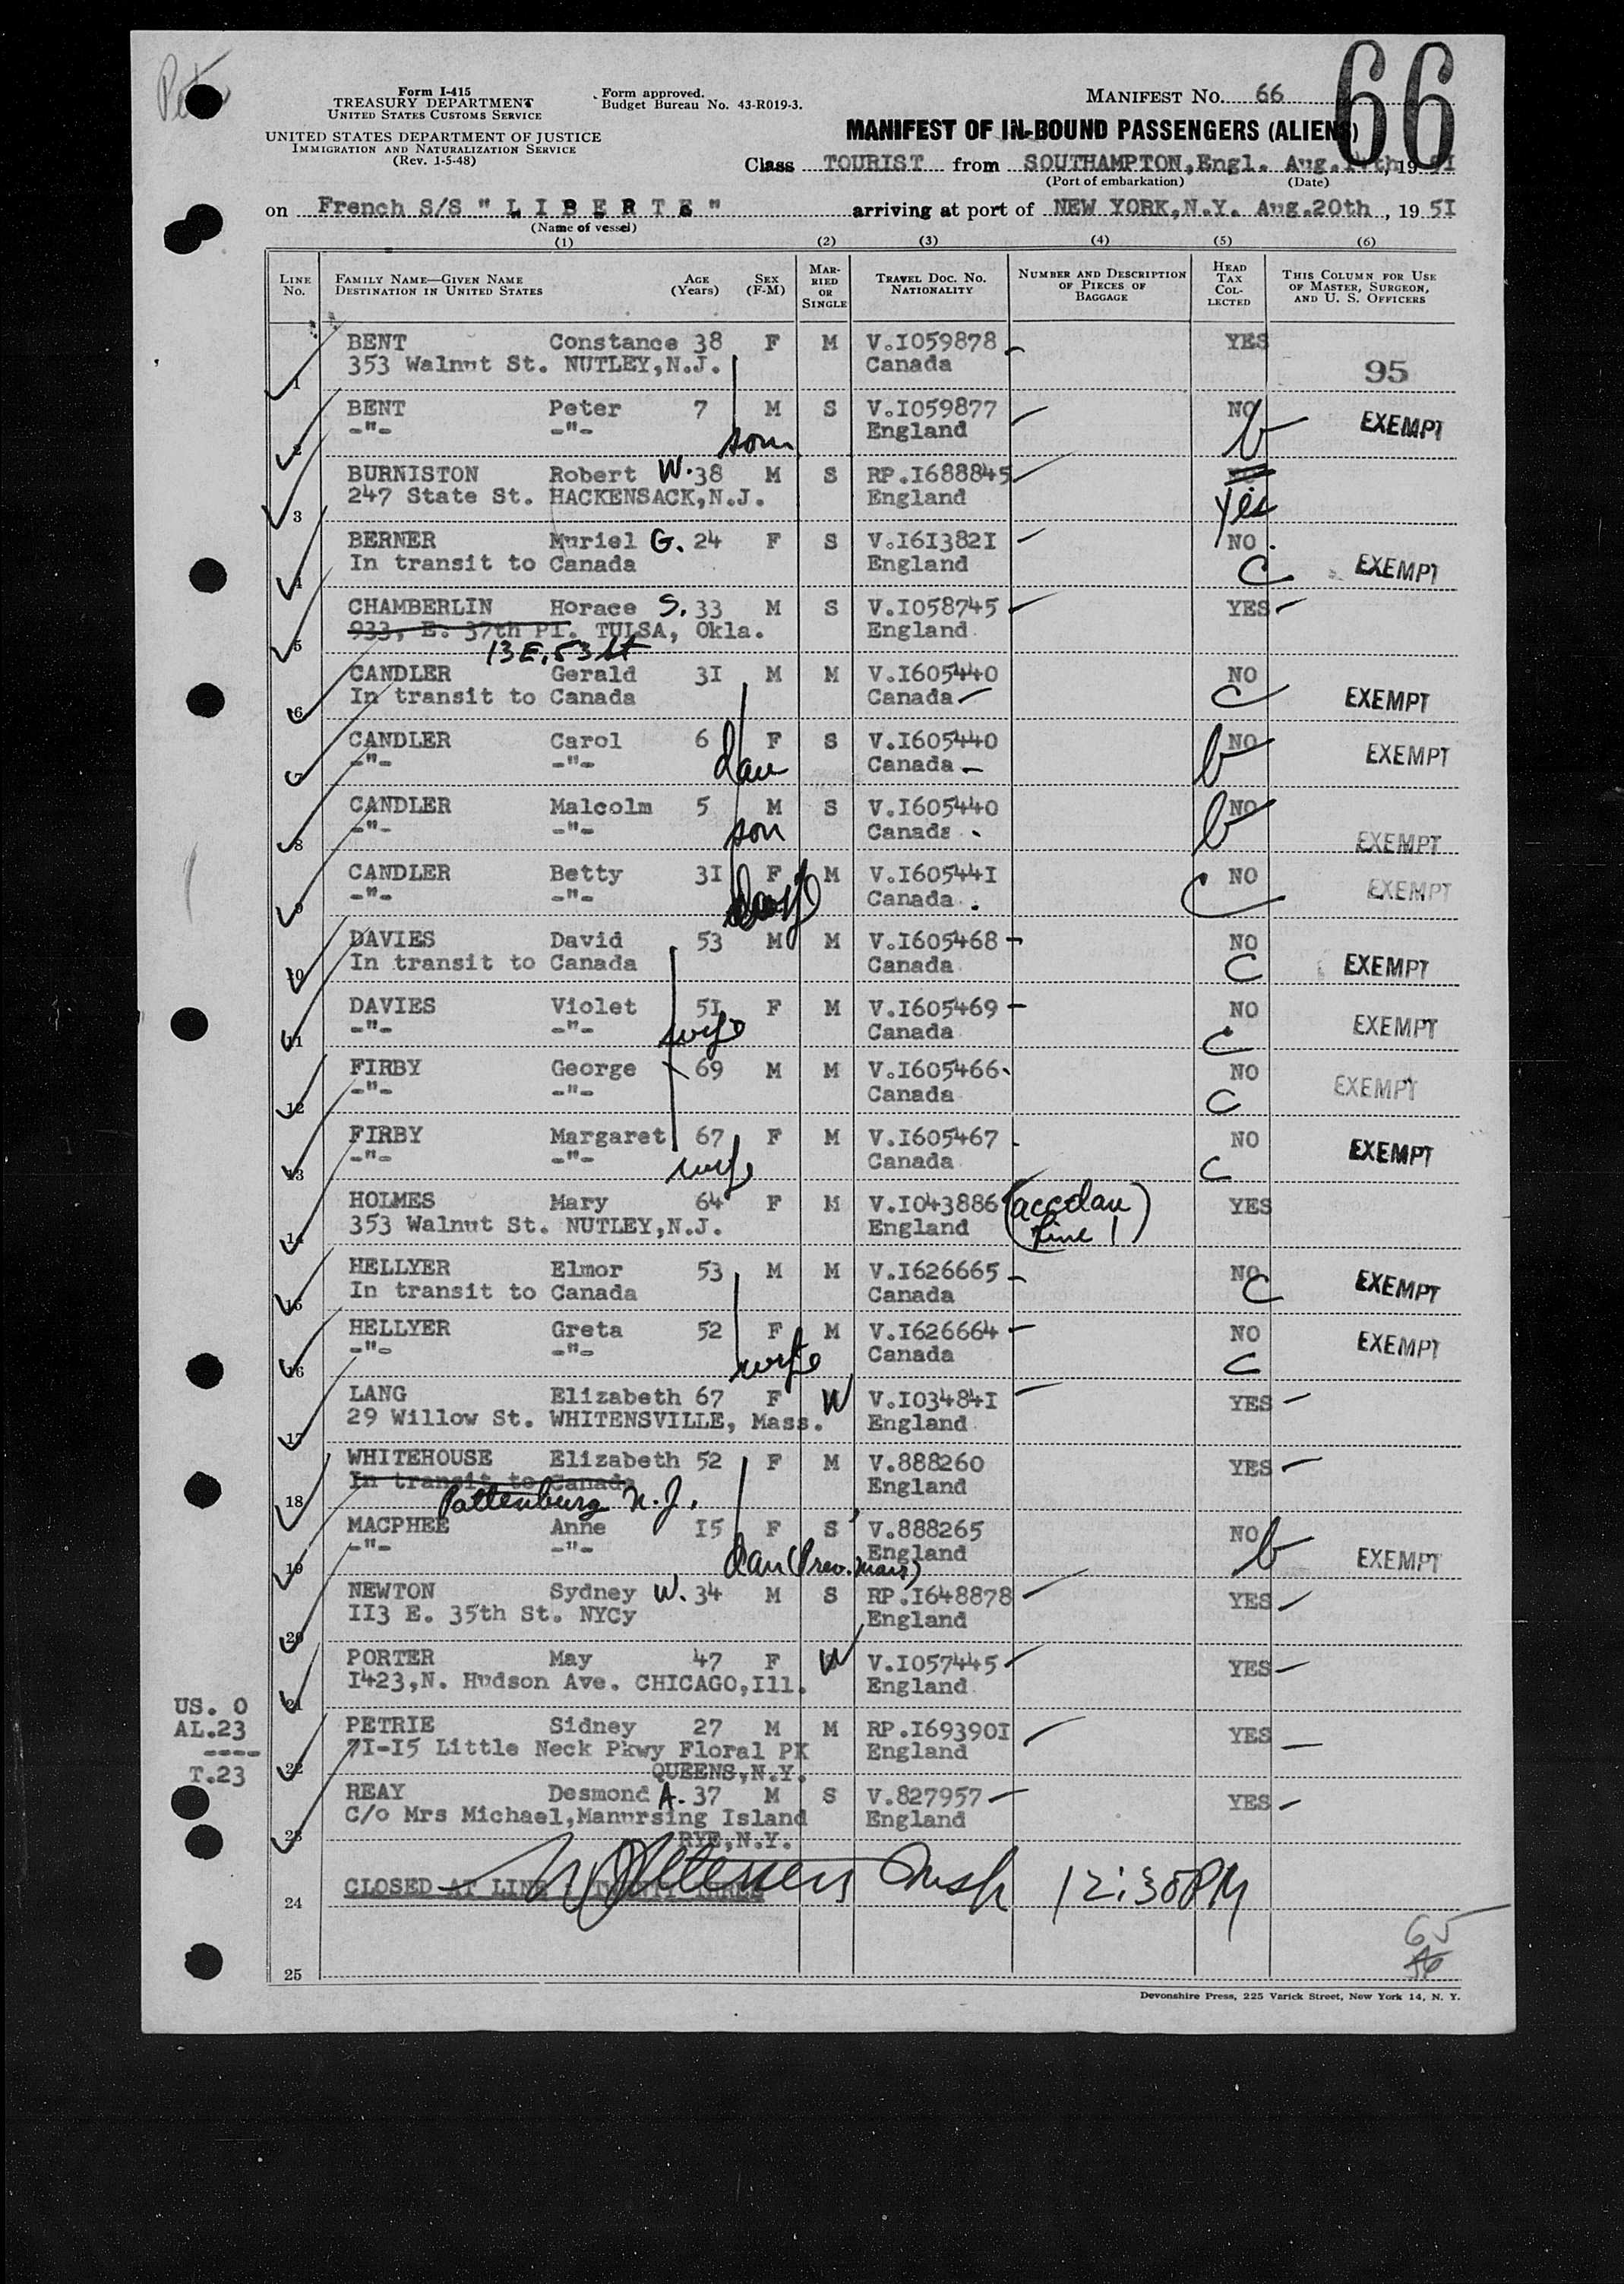 66
Form I-415
TREASURY DEPARTMENT
UNITED STATES CUSTOMS SERVICE
UNITED STATES DEPARTMENT OF JUSTICE
IMMIGRATION AND NATURALIZATION SERVICE
(Rev. 1-5-48)
Form approved.
Budget Bureau No. 43-R019-3.
MANIFEST NO. 66
MANIFEST OF IN-BOUND PASSENGERS (ALIENS)
Class TOURIST from SOUTHAMPTON,Engl. Aug. , 19 5I
(Port of embarkation) (Date)
on French S/S " L I B E R T E " arriving at port of NEW YORK,N.Y. Aug.20th , 19 5I
(Name of vessel)
(1) (2) (3) (4) (5) (6)
LINE NO. FAMILY NAME—GIVEN NAME DESTINATION IN UNITED STATES AGE (Years) SEX (F-M) MARRIED OR SINGLE TRAVEL DOC. NO. NATIONALITY NUMBER AND DESCRIPTION OF PIECES OF BAGGAGE HEAD TAX COLLECTED THIS COLUMN FOR USE OF MASTER, SURGEON, AND U. S. OFFICERS
BENT Constance 38 F M V.I059878 YES
1 353 Walnut St. NUTLEY,N.J. Canada 95
BENT Peter 7 M S V.I059877 NO EXEMPT
2 -"- -"- son England b
BURNISTON Robert W. 38 M S RP.I688845 NO
3 247 State St. HACKENSACK,N.J. England Yes
BERNER Muriel G. 24 F S V.I6I382I NO
4 In transit to Canada England C EXEMPT
CHAMBERLIN Horace S. 33 M S V.I058745 YES
5 933, E. 37th Pl. TULSA, Okla. England
13 E, 53 St
CANDLER Gerald 3I M M V.I605440 NO
6 In transit to Canada Canada C EXEMPT
CANDLER Carol 6 F S V.I605440 NO EXEMPT
-"- -"- dau Canada b
CANDLER Malcolm 5 M S V.I605440 NO
8 -"- -"- son Canada b EXEMPT
CANDLER Betty 3I F M V.I60544I NO
9 -"- -"- wife Canada C EXEMPT
DAVIES David 53 M M V.I605468 NO
10 In transit to Canada Canada C EXEMPT
DAVIES Violet 5I F M V.I605469 NO
11 -"- -"- wife Canada C EXEMPT
FIRBY George 69 M M V.I605466 NO
12 -"- -"- Canada C EXEMPT
FIRBY Margaret 67 F M V.I605467 NO
13 -"- -"- wife Canada C EXEMPT
HOLMES Mary 64 F M V.I043886 (acc dau YES
14 353 Walnut St. NUTLEY,N.J. England line 1)
HELLYER Elmor 53 M M V.I626665 NO
15 In transit to Canada Canada C EXEMPT
HELLYER Greta 52 F M V.I626664 NO
16 -"- -"- wife Canada C EXEMPT
LANG Elizabeth 67 F W V.I03484I YES
17 29 Willow St. WHITENSVILLE, Mass. England
WHITEHOUSE Elizabeth 52 F M V.888260 YES
18 In transit to Canada England
Pattenburg N.J.
MACPHEE Anne I5 F S V.888265 NO
19 -"- -"- dau (Prev. Marr) England b EXEMPT
NEWTON Sydney W. 34 M S RP.I648878 YES
20 II3 E. 35th St. NYCy England
PORTER May 47 F W V.I057445 YES
21 I423,N. Hudson Ave. CHICAGO,Ill. England
US. 0
AL.23
----
T.23
PETRIE Sidney 27 M M RP.I69390I YES
22 7I-I5 Little Neck Pkwy Floral PK England
QUEENS,N.Y.
REAY Desmond A. 37 M S V.827957 YES
23 C/o Mrs Michael,Manursing Island England
RYE,N.Y.
24 CLOSED AT LINE TWENTY THREE Insp 12:30PM
65
25
Devonshire Press, 225 Varick Street, New York 14, N. Y.